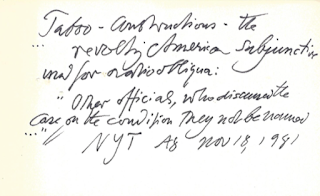 Taboo - Constructions - the
... revolting American subjunctive
used for oratio obliqua:
"Other officials, who discussed the
case on the condition they not be named
..."
NYT A8 Nov 18, 1991